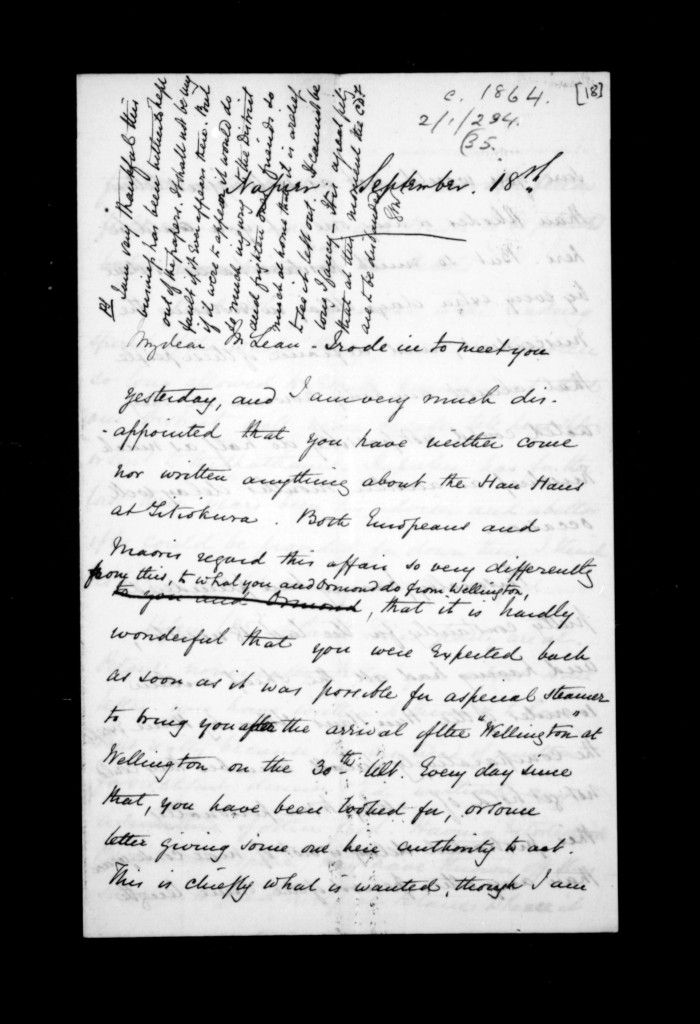 c. 1864.
[18]
2/1/294.
(35.
Napier September. 18th
My dear McLean - I rode in to meet you
yesterday, and I am very much dis-
-appointed that you have neither come
nor written anything about the Hau Haus
at Titiokura. Both Europeans and
Maoris regard this affair so very differently
from this, to what you and Ormond do from Wellington,
to you and Ormond, that it is hardly
wonderful that you were expected back
as soon as it was possible for a special steamer
to bring you after the arrival of the "Wellington" at
Wellington on the 30th Ult. Every day since
that, you have been looked for, or some
letter giving some one here authority to act.
This is chiefly what is wanted, though I am
PS
I am very thankful this
business has been hitherto kept
out of the papers. It shall not be my
fault if it ever appears there. But
if it were to appear it would do
so much injury to the District
and frighten one's friends so
much at home that it is a relief
to see it left out. I cannot be
long I fancy - It is a great pity
that at this moment the CDF
are to be disbanded